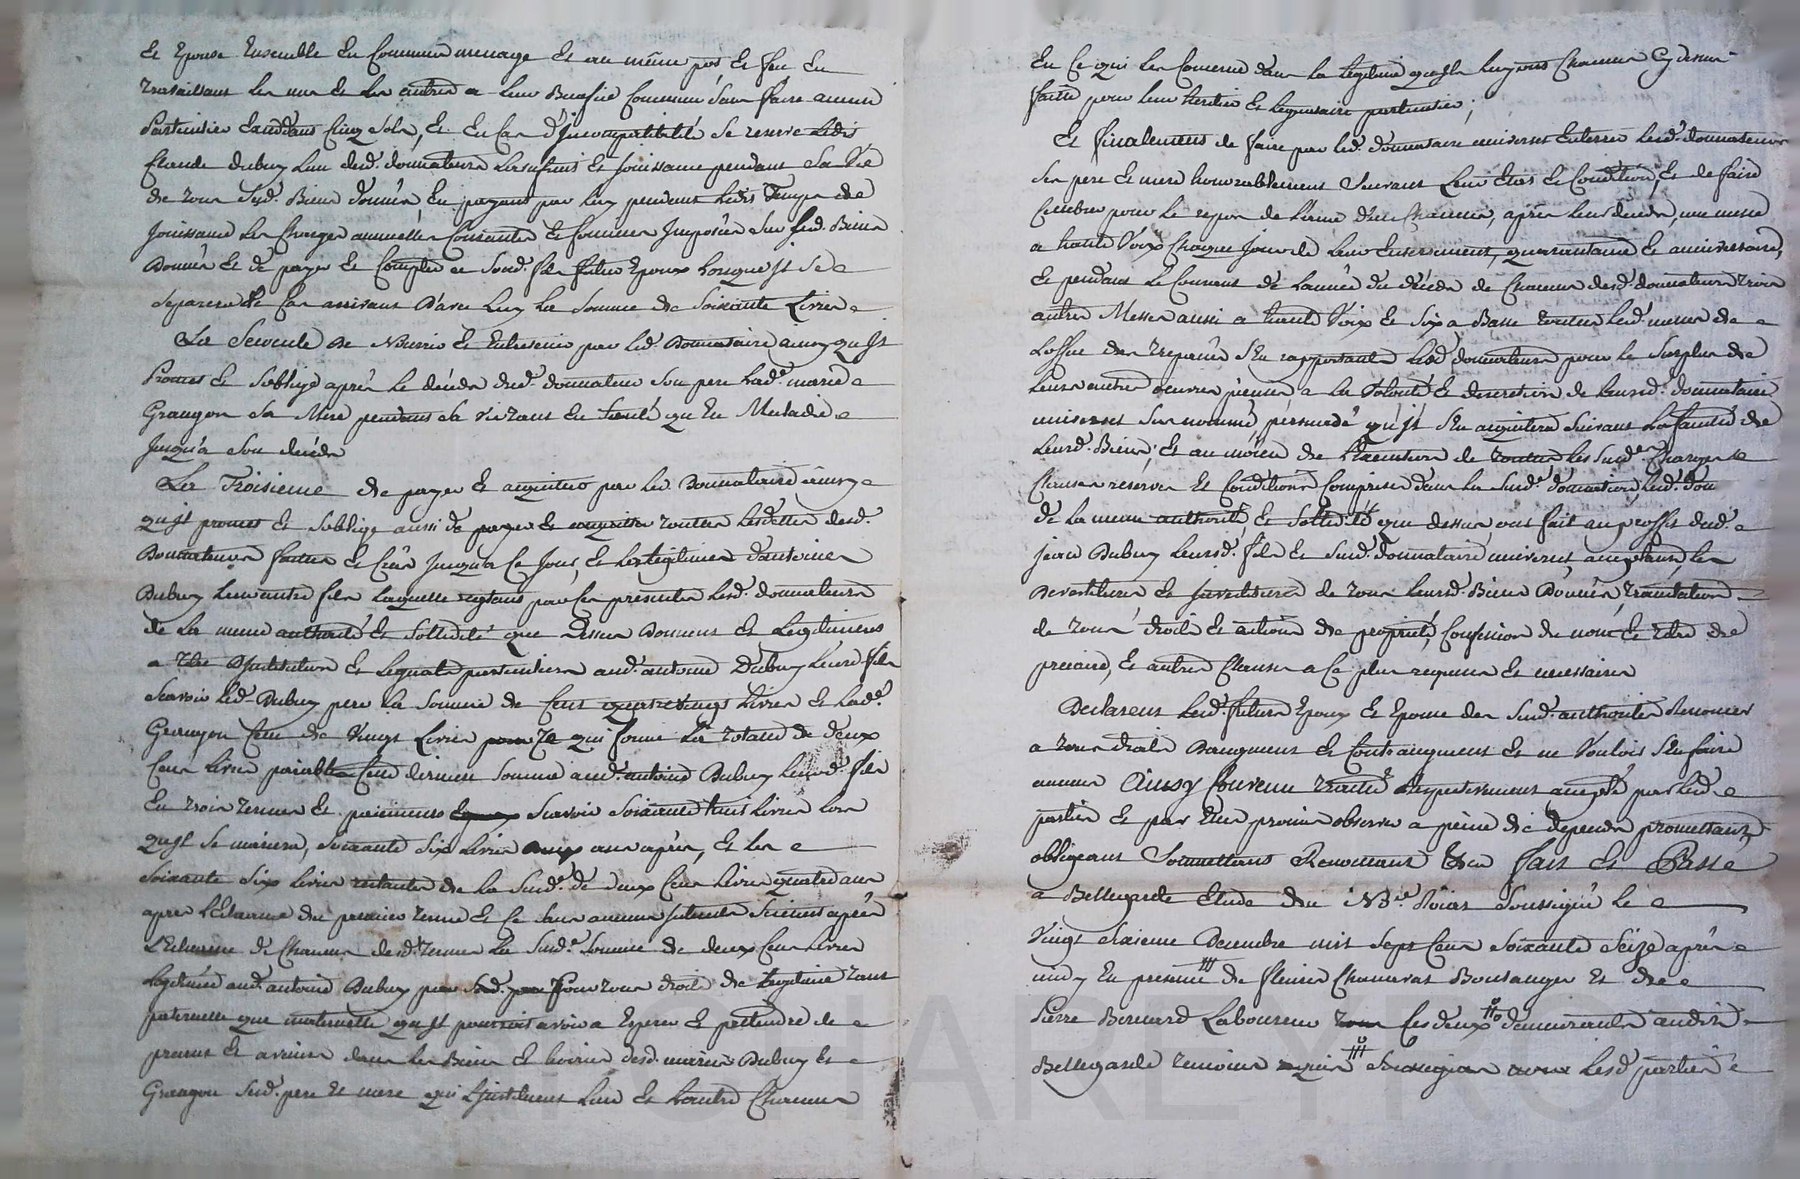 Et Epouse Ensemble En Commun menage Et au même pot Et feu En
travaillant les uns Et les autres a leur Benefice Commun Sans faire aucun
Particulier Excedant Cinq Sols, Et En Cas d'Jncompatibilité Se reserve Ledit
Claude dubuy L'un desd. donnateurs L'usufruit Et Jouissance pendant Sa Vie
de tous Sesd. Biens donnés, En payant par luy pendant Ledit temps de
Jouissance les Charges annuelles Courantes Et foncieres Jmposées Sur Lesd. Biens
Donnés Et de payer Et Compter a Sond. fils futur Epoux Lorsqu'Jl Se
Separera le Cas arrivant D'avec Luy La Somme de Soixante Livres
La Seconde De Nourrir Et Entretenir par led. Donnataire ainsy qu'Jl
Promet Et S'oblige après Le décès dud. donnateur Son pere Lad.e marie
Grangeon Sa Mere pendant Sa Vie tant En Santé qu'En Maladie
Jusqu'a Son décès
La Troisieme de payer Et acquitter par led. Donnataire ainsy
qu'Jl promet Et S'oblige aussi de payer Et acquitter toutes Lesdettes desd.
Donnateurs faittes Et Crées Jusqu'a Ce Jour, Et Les Legitimes d'antoine
Dubuy Leur autre fils Laquelle reglant par Ces presentes Lesd. donnateurs
de La meme authorité Et Sollidité que dessus Donnent Et Leguent
a titre d'Jnstitution Et Legat particulier aud. antoine Dubuy Leurd. fils
Scavoir Led. Dubuy pere La Somme de Cent quatre Vingt Livres Et Lad.e
Grangeon Celle de Vingt Livres qui forme La totalle de deux
Cent Livres paiable Cette derniere Somme aud. antoine Dubuy Leurd. fils
En trois termes Et paiements Scavoir Soixante huit Livres Lors
qu'Jl Se mariera, Soixante Six Livres un an après, Et Les
Soixante Six Livres restantes de La Susd.e de deux Cent Livres quatre ans
apres L'Echeance du premier terme Et Ce Sans aucun Jnterets Sinon après
L'Echeance de Chacun desd. termes La Susd.e Somme de deux Cent Livres
Leguée aud. antoine Dubuy pour tous droits de Legitime tant
paternelle que maternelle qu'Jl pourroit avoir a Esperer Et pretendre de
present Et avenir dans Les Biens Et hoirie desd. mariés Dubuy Et
Grangeon Sesd. pere Et mere qui L'Jnstituent L'un Et L'autre Chacun
En Ce qui Les Concerne dans La Legitime qu'Jls luy ont Chacun Cy dessus
faitte pour leur heritier Et Legataire particulier;
Et finalement de faire par led. donnataire universel Enterrer Lesd. donnateurs
Ses pere Et mere honorablement Suivant Leur Etat Et Condition, Et de faire
Celebrer pour Le repos de L'ame d'un Chacun, après leur decès, une messe
a haute Voix Chaque Jour de Leur Enterrement, quarantaine Et anniversaire,
Et pendant Le Courant de L'année du décès de Chacun desd. donnateurs trois
autres Messes aussi a haute Voix Et Six a Basse toutes Lesd. messes de
L'office des trepassés S'En rapportant Lesd. donnateurs pour Le Surplus de
Leurs autres oeuvres pieuses a La Volonté Et discretion de Leurd. donnataire
universel Sus nommé, persuadé qu'Jl S'En acquitera Suivant La faculté de
Leursd. Biens; Et au moien de L'Execution de toutes Les Susd.es Charges
Clauses reserves Et Conditions Comprises dans La Susd.e donnation, Lesd. don
de La meme authorité Et Sollidité que dessus ont fait au proffit dud.
jean Dubuy Leurd. fils Et Susd. donnataire universel, acceptant, Les
Devestitures Et Jnvestitures de tous Leursd. Biens Donnés, translation
de tous droits Et actions de proprieté, Confession de nom Et titre de
precaire, Et autres Clauses a Ce plus requises Et necessaires
Declarent Lesd. futurs Epoux Et Epouse des Susd. authorités Renoncer
a tous droits D'augment Et Contr'augment Et ne Vouloir S'En faire
aucun Ainsy Convenu traitté Respectivement accepté par Lesd.
parties Et par Elles promis observer a peine de depends promettant
obligeant Soumettant Renonçant Et.a Fait Et Passé
a Bellegarde Etude du Nre Soussigné Le
Vingt Sixieme Decembre mil Sept Cent Soixante Seize après
midy En presence de fleury Chanavat Boulanger Et de
Pierre Bernard Laboureur Ces deux demeurants audit
Bellegarde temoins Lesd. parties